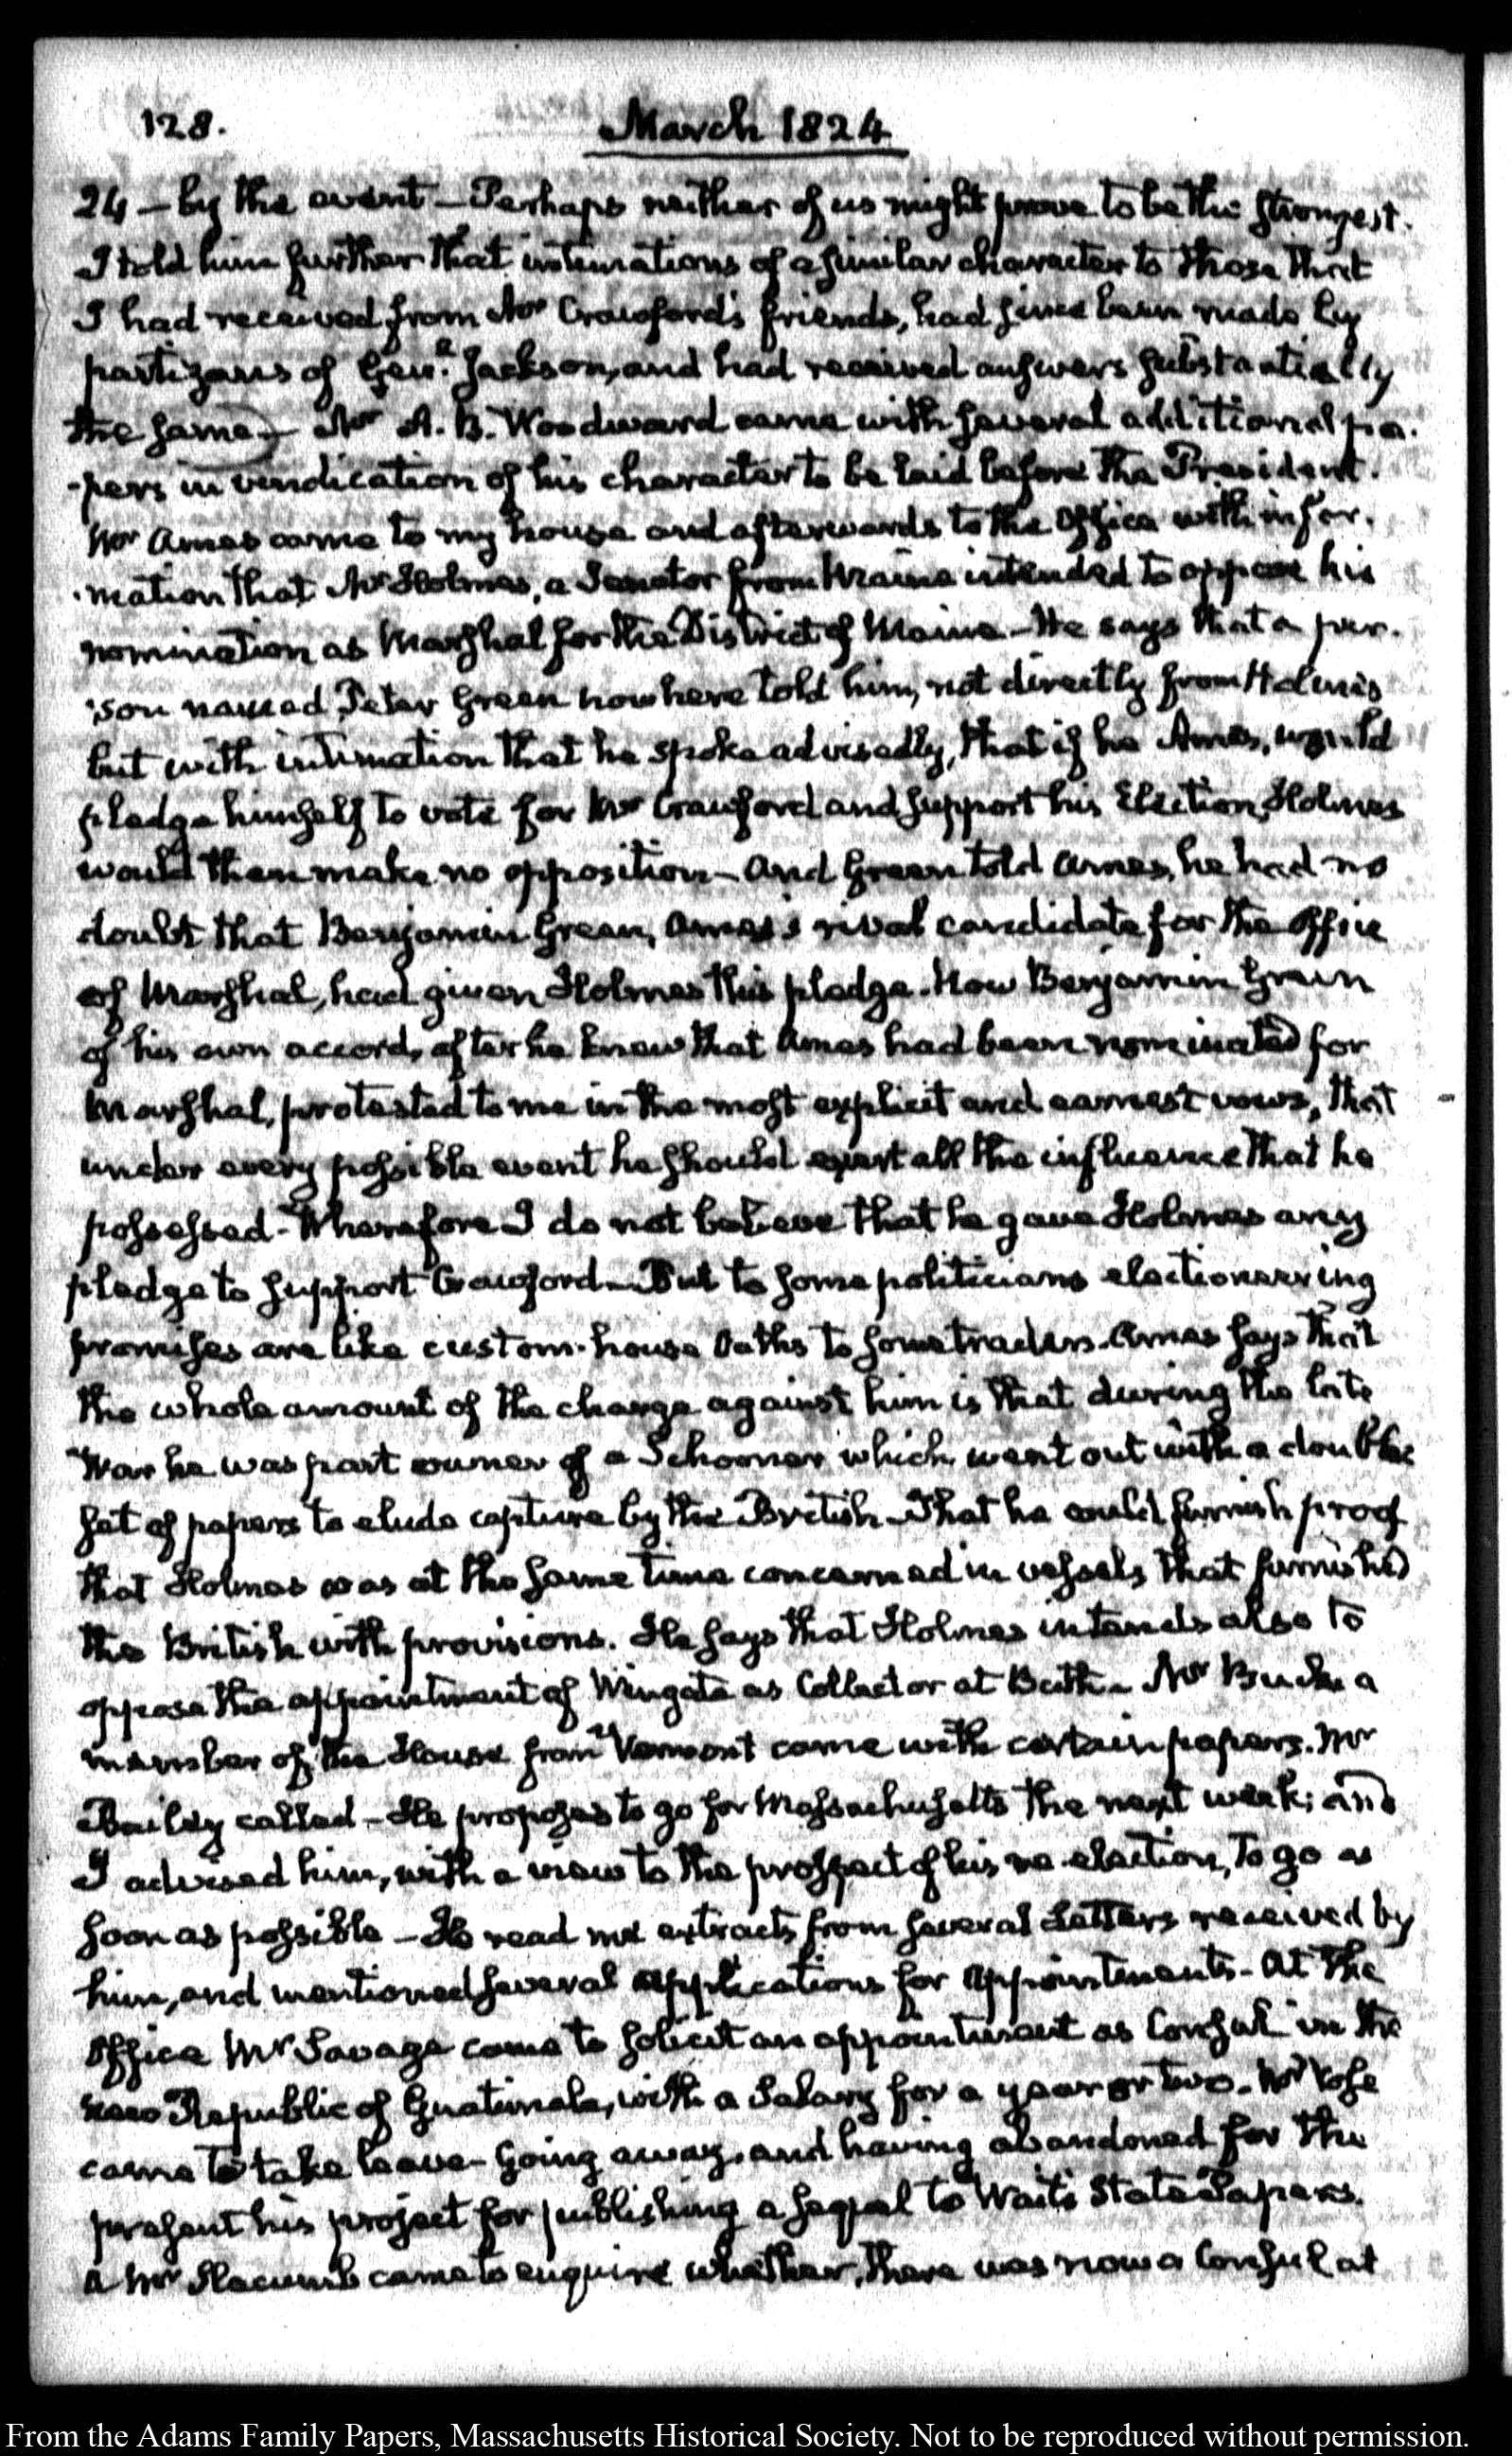 128.
March 1824
24 — by the event — Perhaps neither of us might prove to be the strongest.
I told him further that intimations of a similar character to those that
I had received from Mr Crawford's friends, had since been made by
partizans of Genl. Jackson, and had received answers substantially
the same — Mr A. B. Woodward came with several additional pa-
-pers in vindication of his character to be laid before the President.
Mr Ames came to my house and afterwards to the Office with infor-
-mation that Mr Holmes, a Senator from Maine intended to oppose his
nomination as Marshal for the District of Maine — He says that a per-
-son named Peter Green now here told him, not directly from Holmes
but with intimation that he spoke advisedly, that if he Ames, would
pledge himself to vote for Mr Crawford and support his Election, Holmes
would then make no opposition — And Green told Ames, he had no
doubt that Benjamin Green, Ames's rival candidate for the Office
of Marshal, had given Holmes this pledge. Now Benjamin Green
of his own accord, after he knew that Ames had been nominated for
Marshal, protested to me in the most explicit and earnest vows, that
under every possible event he should exert all the influence that he
possessed — Wherefore I do not believe that he gave Holmes any
pledge to support Crawford — But to some politicians electioneering
promises are like custom-house Oaths to some traders. Ames says that
the whole amount of the charge against him is that during the late
War he was part owner of a Schooner which went out with a double
set of papers to elude capture by the British — That he could furnish proof
that Holmes was at the same time concerned in vessels that furnished
the British with provisions. He says that Holmes intends also to
oppose the appointment of Wingate as Collector at Bath — Mr Buck a
member of the House from Vermont came with certain papers. Mr
Bailey called — He proposes to go for Massachusetts the next week; and
I advised him, with a view to the prospect of his re-election, to go as
soon as possible — He read me extracts from several Letters received by
him, and mentioned several applications for appointments — At the
Office Mr Savage came to solicit an appointment as Consul in the
new Republic of Guatimala, with a Salary for a year or two. Mr Vose
came to take leave — Going away, and having abandoned for the
present his project for publishing a sequel to Wait's State Papers.
A Mr Slacumb came to enquire whether, there was now a Consul at
From the Adams Family Papers, Massachusetts Historical Society. Not to be reproduced without permission.